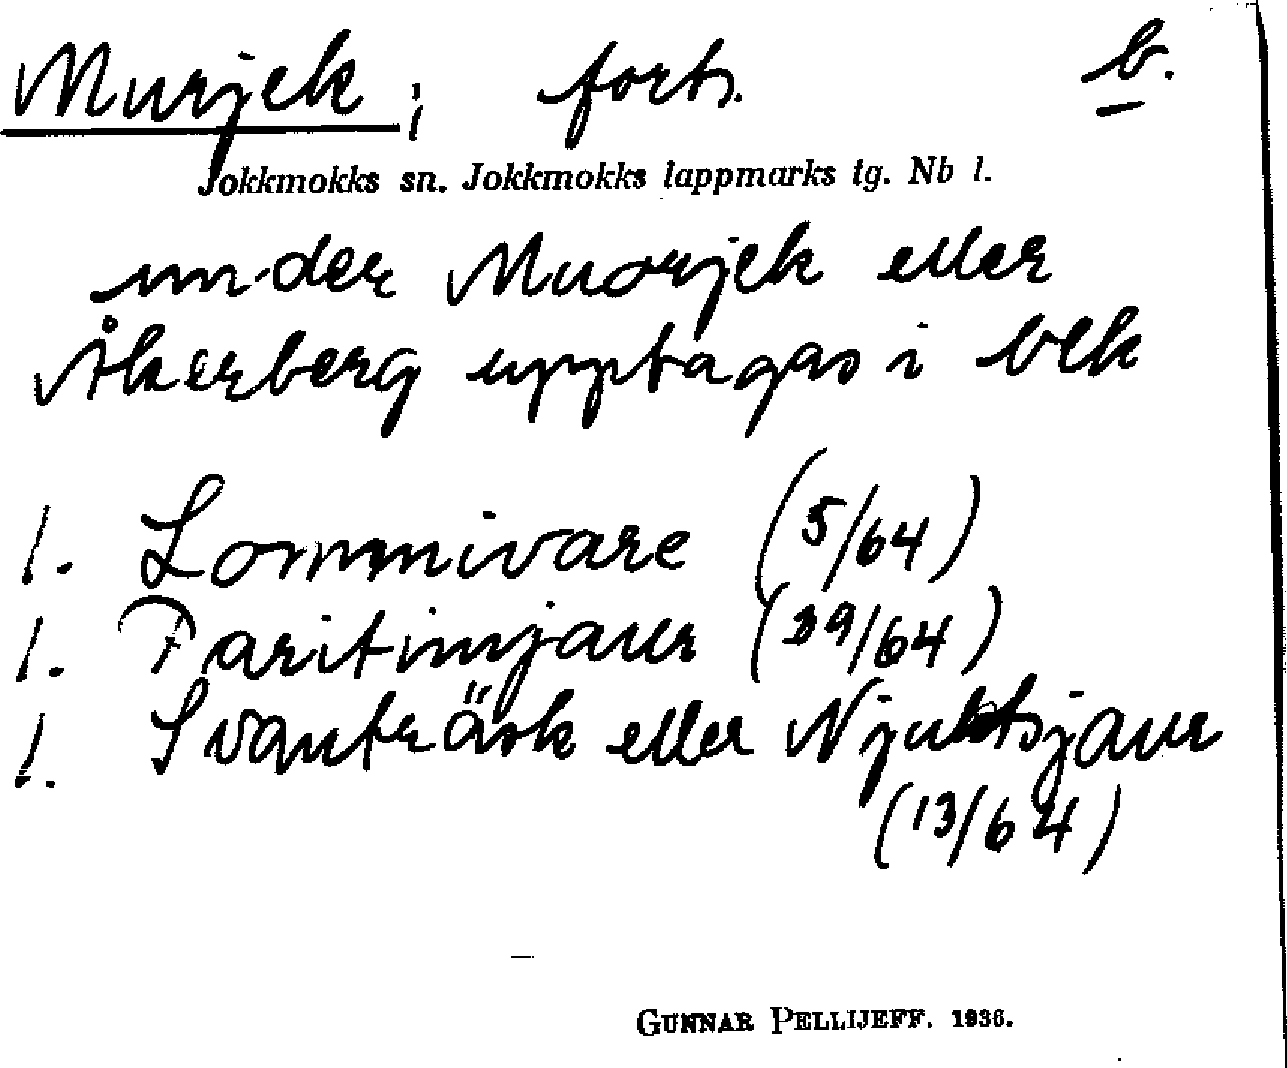 Murjek; forts. b.
Jokkmokks sn. Jokkmokks lappmarks tg. Nb l.
under Muorjek eller
Åkerberg upptagas i bek
1. Lommivare (5/64)
1. Paritinjaur (39/64)
1. Svanträsk eller Njuktsjaur
(13/64)
GUNNAR PELLIJEFF. 1936.